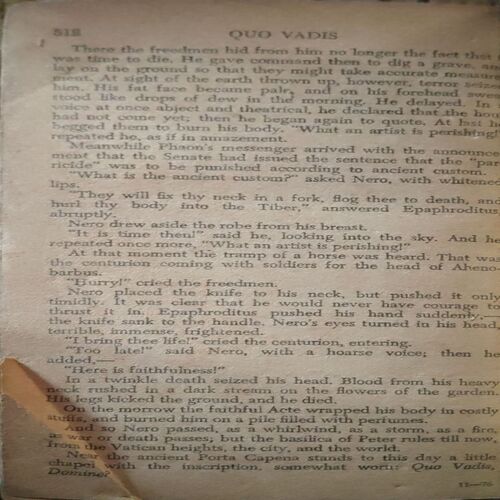 512 QUO VADIS
There the freedmen hid from him no longer the fact that i
was time to die. He gave command then to dig a grave, an
lay on the ground so that they might take accurate measure
ment. At sight of the earth thrown up, however, terror seize
him. His fat face became pale, and on his forehead swea
stood like drops of dew in the morning. He delayed. In
voice at once abject and theatrical, he declared that the hou
had not come yet; then he began again to quote. At last h
begged them to burn his body. "What an artist is perishing!
repeated he, as if in amazement.
Meanwhile Phaon's messenger arrived with the announce
ment that the Senate had issued the sentence that the "par
ricide" was to be punished according to ancient custom.
"What is the ancient custom?" asked Nero, with whitene
lips.
"They will fix thy neck in a fork, flog thee to death, and
hurl thy body into the Tiber," answered Epaphroditus
abruptly.
Nero drew aside the robe from his breast.
"It is time then!" said he, looking into the sky. And he
repeated once more, "What an artist is perishing!"
At that moment the tramp of a horse was heard. That was
the centurion coming with soldiers for the head of Aheno
barbus.
"Hurry!" cried the freedmen.
Nero placed the knife to his neck, but pushed it only
timidly. It was clear that he would never have courage to
thrust it in. Epaphroditus pushed his hand suddenly,—
the knife sank to the handle. Nero's eyes turned in his head,
terrible, immense, frightened.
"I bring thee life!" cried the centurion, entering.
"Too late!" said Nero, with a hoarse voice; then he
added,—
"Here is faithfulness!"
In a twinkle death seized his head. Blood from his heavy
neck rushed in a dark stream on the flowers of the garden.
His legs kicked the ground, and he died.
On the morrow the faithful Acte wrapped his body in costly
stuffs, and burned him on a pile filled with perfumes.
And so Nero passed, as a whirlwind, as a storm, as a fire,
as war or death passes; but the basilica of Peter rules till now,
from the Vatican heights, the city, and the world.
Near the ancient Porta Capena stands to this day a little
chapel with the inscription, somewhat worn: Quo Vadis,
Domine?